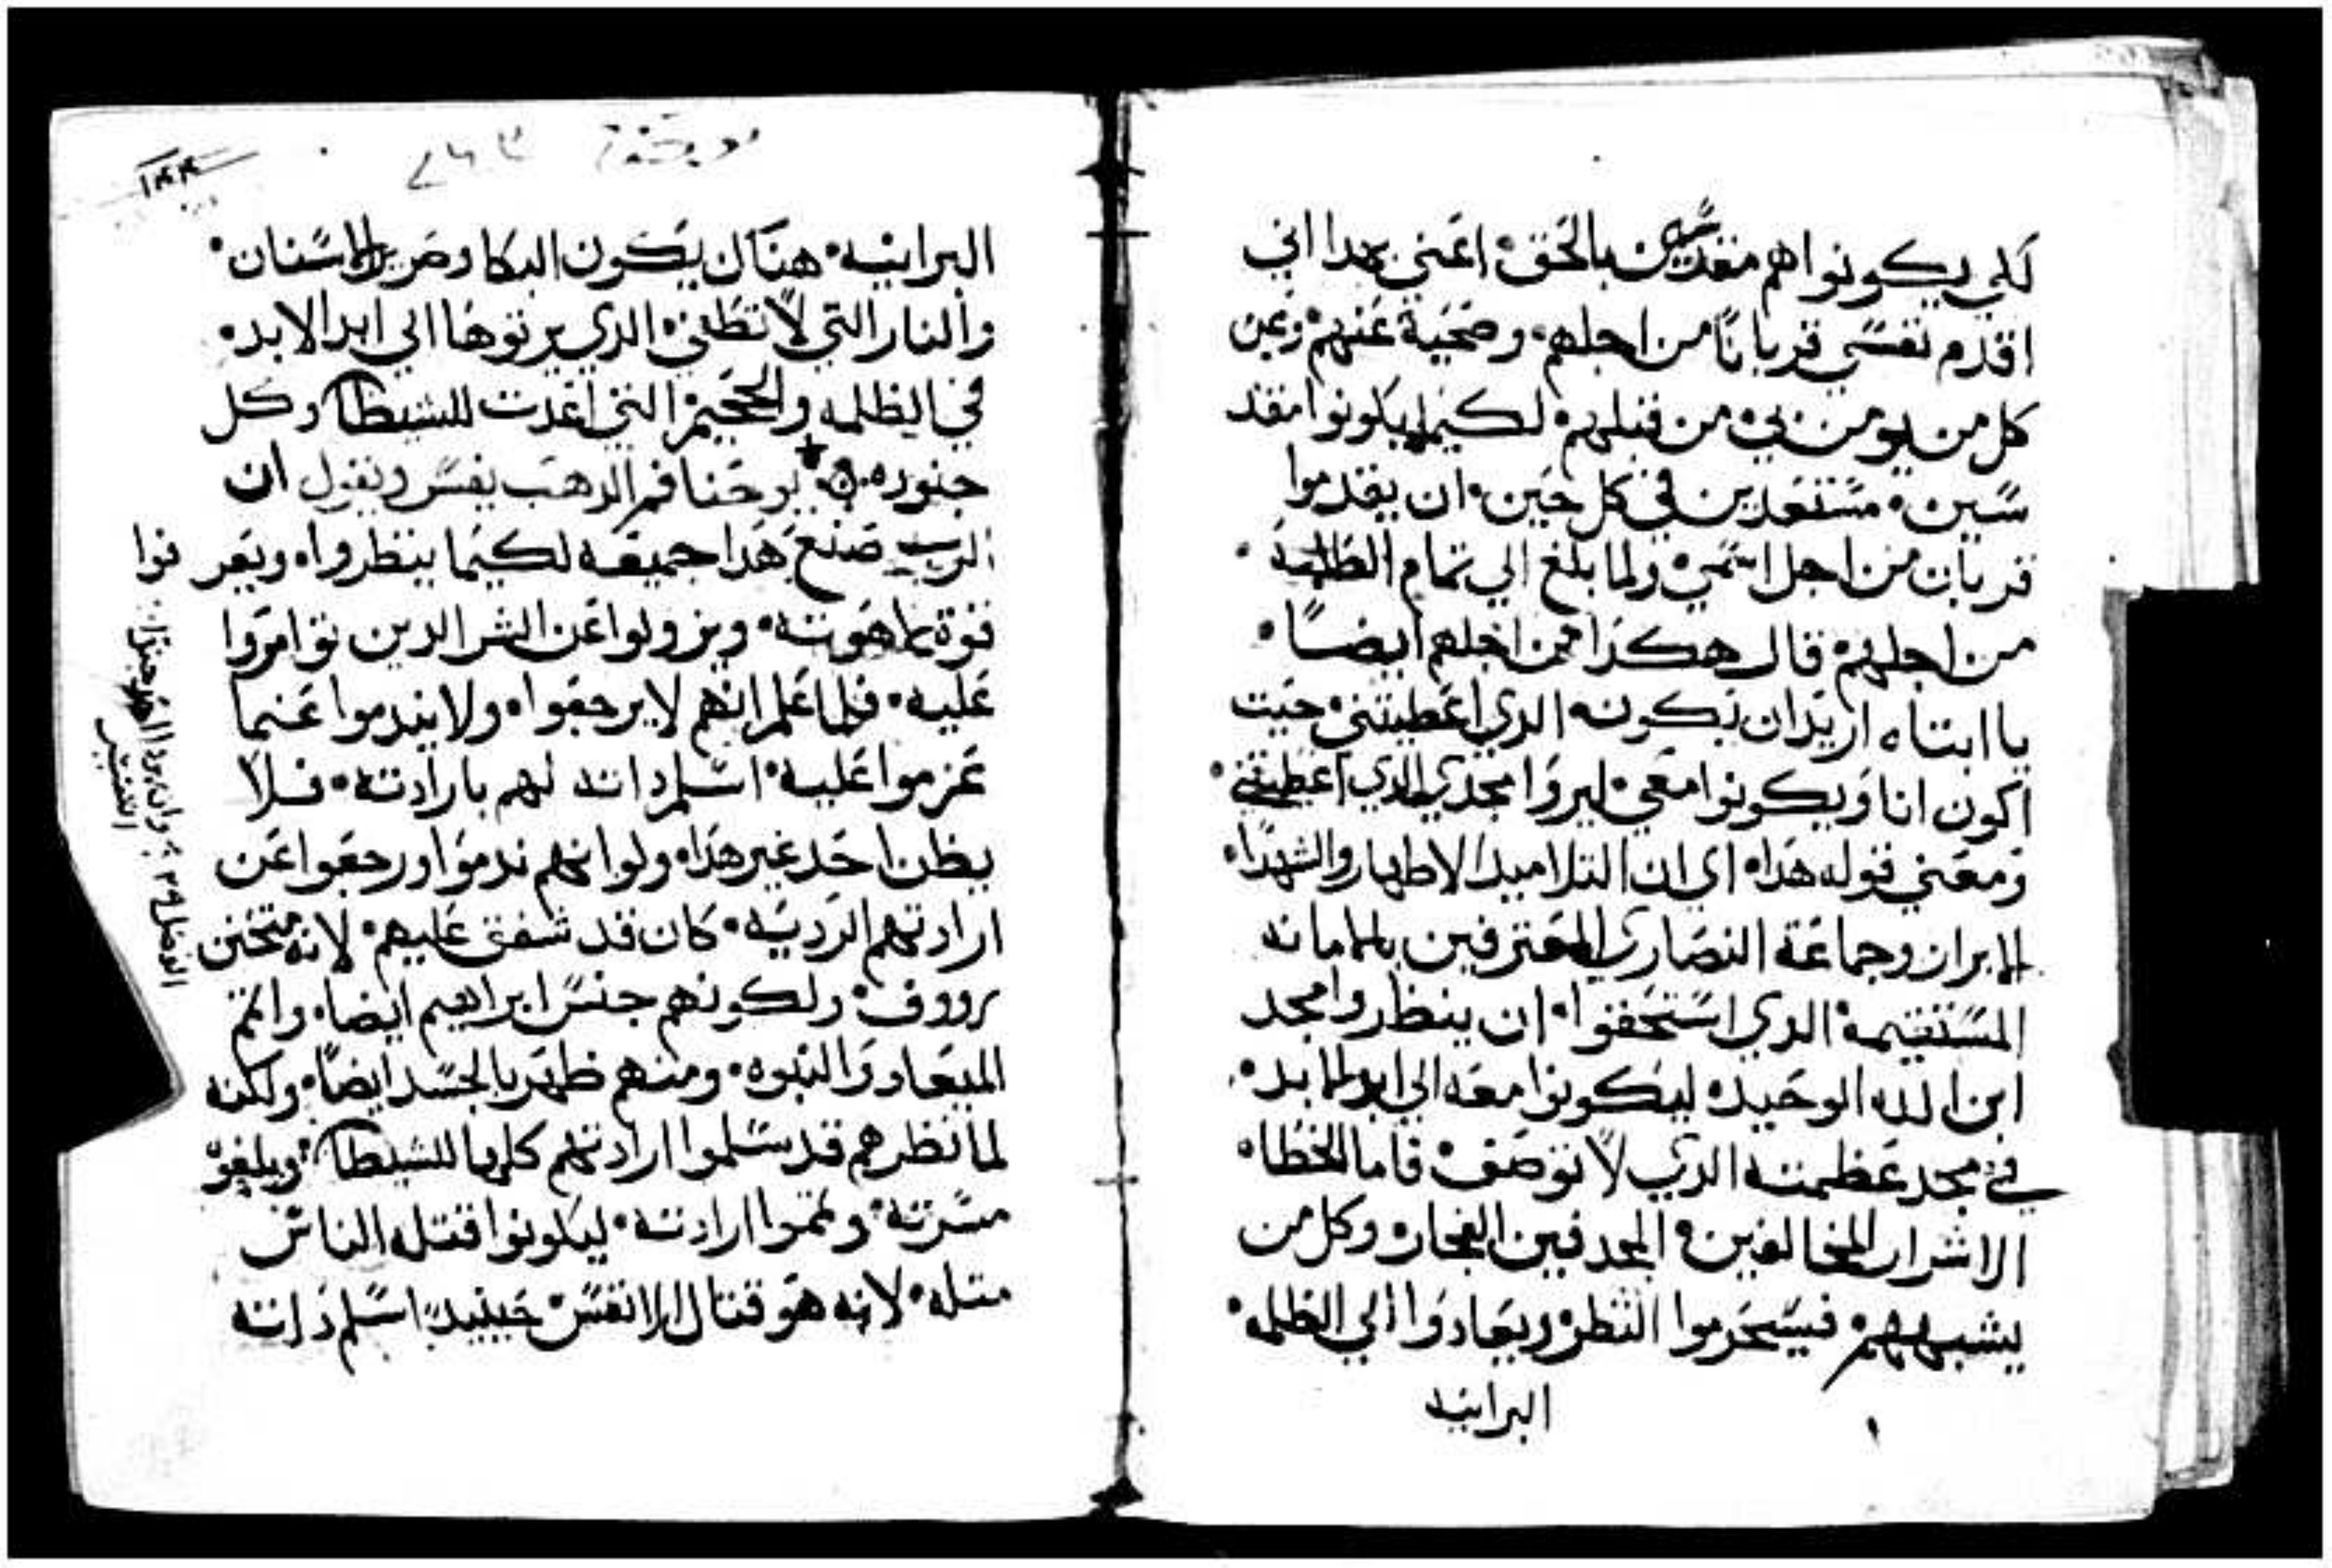 لكي يكونوا هم مقدسين بالحق۰ اعني بهدا اني
اقدم نفسي قربانًا من اجلهم۰ وضحية عنهم وعن
كل من يومن بي من قبلهم لكيما يكونوا مقد
سين۰ مستعدين في كل حين۰ ان يقدموا
قربان من اجل اسمي ولما بلغ الي تمام الطلبة۰
من اجلهم قال هكدا من اجلهم ايضًا۰
يا ابتاه اريد ان يكونه الدي اعطيتني حيت
اكون انا ويكونوا معي ليروا مجدي الدي اعطيتني۰
ومعني قوله هدا۰ اي ان التلاميد الاطهار والشهدا۰
الابرار وجماعة النصاري المعترفين بالامانه
المستقيمه الدي استحقوا۰ ان ينظروا مجد
ابن الله الوحيد۰ ليكونوا معه الي ابد الابد۰
في مجد عظمته الدي لا توصف۰ فاما الخطا۰
الاشرار المخالفين۰ المجدفين الفجار۰ وكل من
يشبههم۰ فيسحرموا النظر۰ ويعادوا الي الظلمه۰
البرانيه
١٤٤
البرانيه۰ هناك يكون البكا وصرير الاسنان۰
والنار التي لا تطفي الدي يرتوها الي ابد الابد۰
في الظلمه والجحيم التي اعدت للشيطان وكل
جنوده۰ يوحنا فم الدهب يفسر ويقول ان
الرب صنع هدا جميعه لكيما ينظروا۰ ويعرفوا
قوة لاهوته۰ ويزولوا عن الشر الدين توامروا
عليه۰ فلما علم انهم لا يرجعوا۰ ولا يندموا عنما
عزموا عليه۰ اسلم داته لهم بارادته۰ فلا
يظن احد غير هدا۰ ولو انهم ندموا ورجعوا عن
ارادتهم الرديه۰ كان قد شفق عليهم۰ لانه متحنن
رووف۰ ولكونهم جنس ابراهيم ايضا۰ واتم
الميعاد والنبوه۰ ومنهم ظهر بالجسد ايضًا۰ ولكنه
لما نظرهم قد سلموا ارادتهم كلها للشيطان۰ ويبلغوا
مسرته۰ وتمموا ارادته۰ ليكونوا قتله الناس
متله۰ لانه هو قتال الانفس حينيدٍ اسلم داته
التفسير